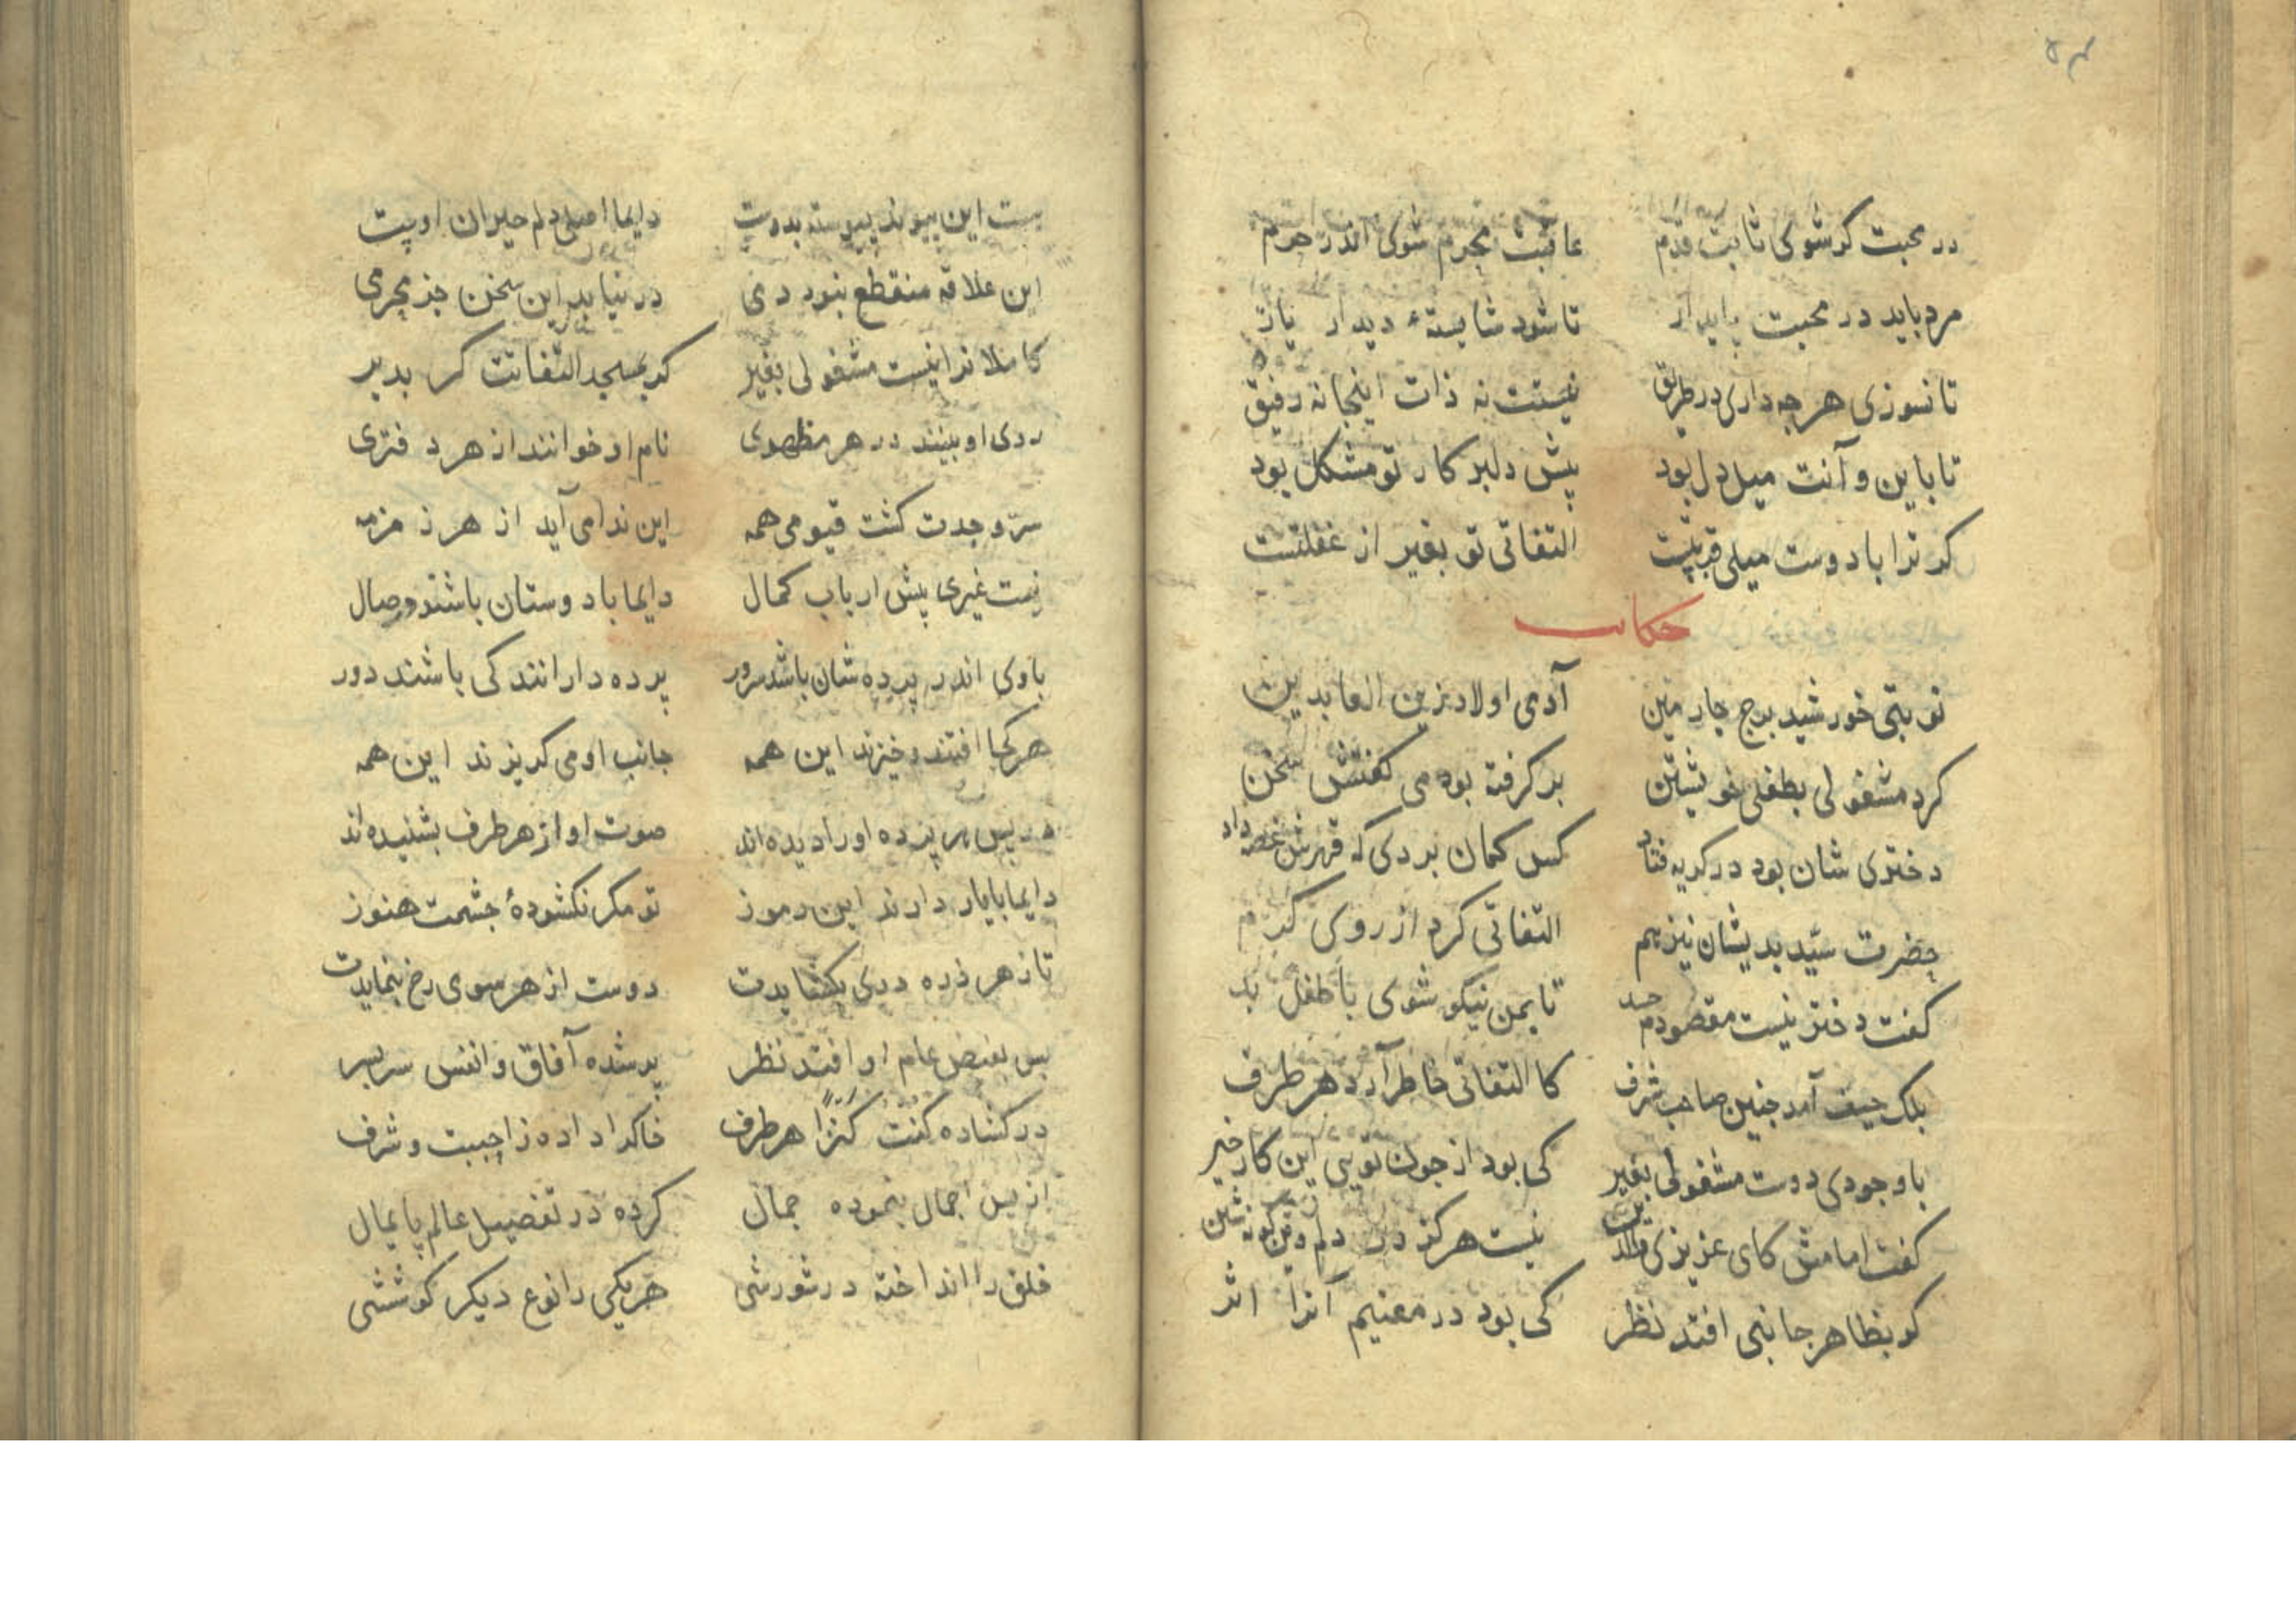 در محبت کر شوی ثابت قدم عاقبت محرم شوی اندر حرم
مرد باید در محبت پایدار تا شود شایستهٔ دیدار یار
تا نسوزی هر چه داری در طریق نیستت نه ذات اینجا نه رفیق
تا باین و آنت میل دل بود پیش دلبر کار تو مشکل بود
کر ترا با دوست میلی قربتست التفاتی تو بغیر از غفلتست
حکایت
نوبتی خورشید برج چارمین آدمی اولاد زین العابدین
کرد مشغولی بطفلی خویشتن بر کرفته بود می کفتش سخن
دختری شان بود در کریه فتاد کس کمان بردی که قهرش غصه داد
حضرت سیّد بدیشان نیز هم التفاتی کرد از روی کرم
کفت دختر نیست مقصودم حسد تا بمن نیکو شوی با طفل بد
بلک حیف آمد چنین صاحب شرف کالتفاتی خاطر آرد هر طرف
با وجودی دوست مشغولی بغیر کی بود از چون تویی این کار خیر
کفت امامش کای عزیزی نیست هرکز در دلم
کو بظاهر جانبی افتد نظر کی بود در معنیم آنرا اثر
هست این پیوند پیوسته بدوست دایما اصلی دلم حیران اوست
این علاقه منقطع نبود دمی در نیابد این سخن جز محرمی
کاملانرا نیست مشغولی بغیر که بمسجد التفاتت کر بدیر
روی او بینند در هر مظهری نام او خوانند از هر دفتری
سرّ وحدت کشت قیومی همه این ندا می آید از هر زمزمه
نیست غیری پیش ارباب کمال دایما با دوستان باشند وصال
باوی اندر پرده شان باشد سرور پرده دارانند کی باشند دور
هر کجا افتند و خیزند این همه جانب او می کریزند این همه
در پس هر پرده او را دیده اند صوت او از هر طرف بشنیده اند
دایما با یار دارند این رموز تو مکر نکشودهٔ چشمت هنوز
تا ز هر ذره دری بکشایدت دوست از هر سوی رخ بنمایدت
بس بفیض عام او افتد نظر پر شده آفاق و انفس سربسر
در کشاده کنت کنزًا هر طرف خاکرا داده ز احببت و شرف
از پس اجمال بنموده جمال کرده در تفضیل عالم پایمال
خلق را انداخته در شورشی هر یکی را نوع دیکر کوششی